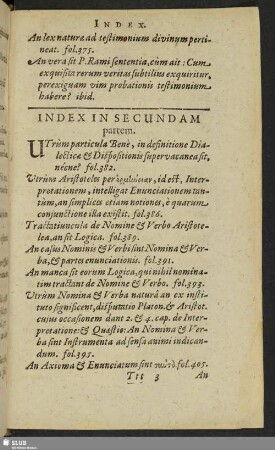 INDEX.
An lex naturæ ad testimonium divinum perti-
neat. fol.375.
An vera sit P. Rami sententia, cùm ait: Cum
exquisita rerum veritas subtilius exquiritur,
perexiguam vim probationis testimonium
habere? ibid.
INDEX IN SECUNDAM
partem.
UTrùm particula Benè, in definitione Dia-
lecticæ & Dispositionis supervacanea sit,
nécne? fol.382.
Utrùm Aristoteles per ἑρμηνείαν, id est, Inter-
pretationem, intelligat Enunciationem tan-
tùm, an simplices etiam notiones, è quarum
conjunctione illa existit. fol.386.
Tractatiuncula de Nomine & Verbo Aristote-
lea, an sit Logica. fol.389.
An casus Nominis & Verbi sint Nomina & Ver-
ba, & partes enunciationis. fol.391.
An manca sit eorum Logica, qui nihil nomina-
tim tractant de Nomine & Verbo. fol.393.
Utrùm Nomina & Verba naturâ an ex insti-
tuto significent, disputatio Platon. & Aristot.
cujus occasionem dant 2. & 4. cap. de Inter-
pretatione: & Quæstio: An Nomina & Ver-
ba sint Instrumenta ad sensa animi indican-
dum. fol.395.
An Axioma & Enunciatum sint fol.405.
Ttt 3 An
SLUB